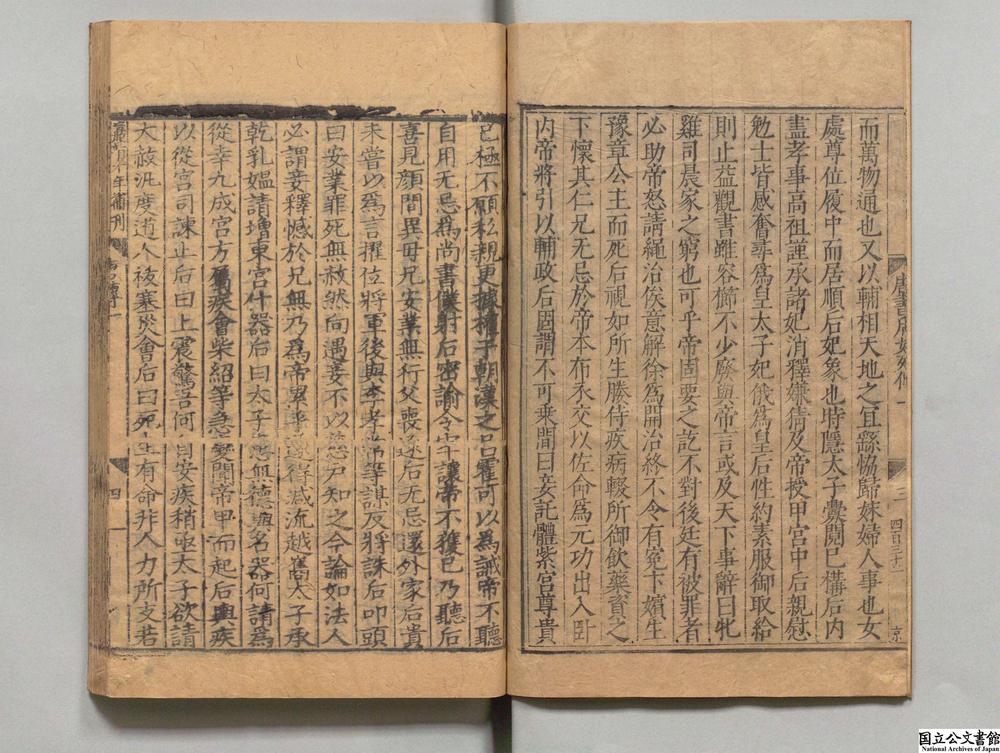 而萬物通也又以輔相天地之宜繇恊歸妹婦人事也女
處尊位履中而居順后妃象也時隱太子釁鬩已構后内
盡孝事高祖謹承諸妃消釋嫌猜及帝授甲宫中后親慰
勉士皆感奮尋爲皇太子妃俄爲皇后性約素服御取給
則止益觀書雖容櫛不少廢與帝言或及天下事辭曰牝
雞司晨家之窮也可乎帝固要之訖不對後廷有被罪者
必助帝怒請繩治俟意解徐爲開治終不令有寃下嬪生
豫章公主而死后視如所生媵侍疾病輟所御飲藥資之
下懷其仁兄无忌於帝本布衣交以佐命爲元功出入卧
内帝將引以輔政后固謂不可乘間曰妾託體紫宫尊貴
唐書后妃傳一
三
四百三十二
京
已極不願私親更據權于朝漢之吕霍可以爲誡帝不聽
自用无忌爲尚書僕射后密諭令牢讓帝不獲已乃聽后
喜見顔間異母兄安業無行父喪逐后无忌還外家后貴
未嘗以爲言擢位將軍後與李孝常等謀反將誅后叩頭
曰安業罪死無赦然向遇妾不以慈户知之今論如法人
必謂妾釋憾於兄無乃爲帝累乎遂得减流越嶲太子承
乾乳媪請增東宫什器后曰太子患無德與名器何請爲
從幸九成宫方屬疾會柴紹等急變聞帝甲而起后輿疾
以從宫司諫止后曰上震驚吾何自安疾稍亟太子欲請
大赦汎度道人祓塞災會后曰死生有命非人力所支若
年補刊
四
國立公文書館
National Archives of Japan